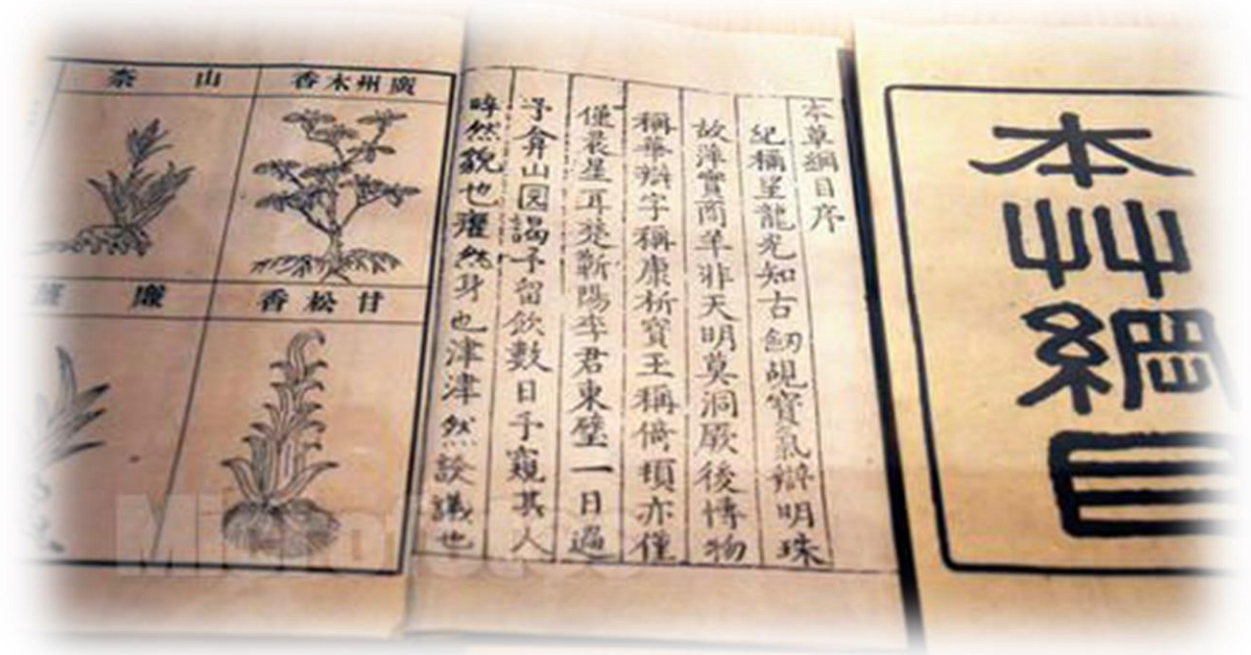 本艸綱目
本草綱目序
紀稱望龍光知古劒覘寶氣辯明珠
故萍實商羊非天明莫洞厥後博物
稱華辯字稱康析寶王稱倚頓亦僅
僅晨星耳楚蘄陽李君東璧一日過
予弇山园謁予留飲數日予窺其人
睟然貌也癯然身也津津然談議也
廣州木香
山柰
甘松香